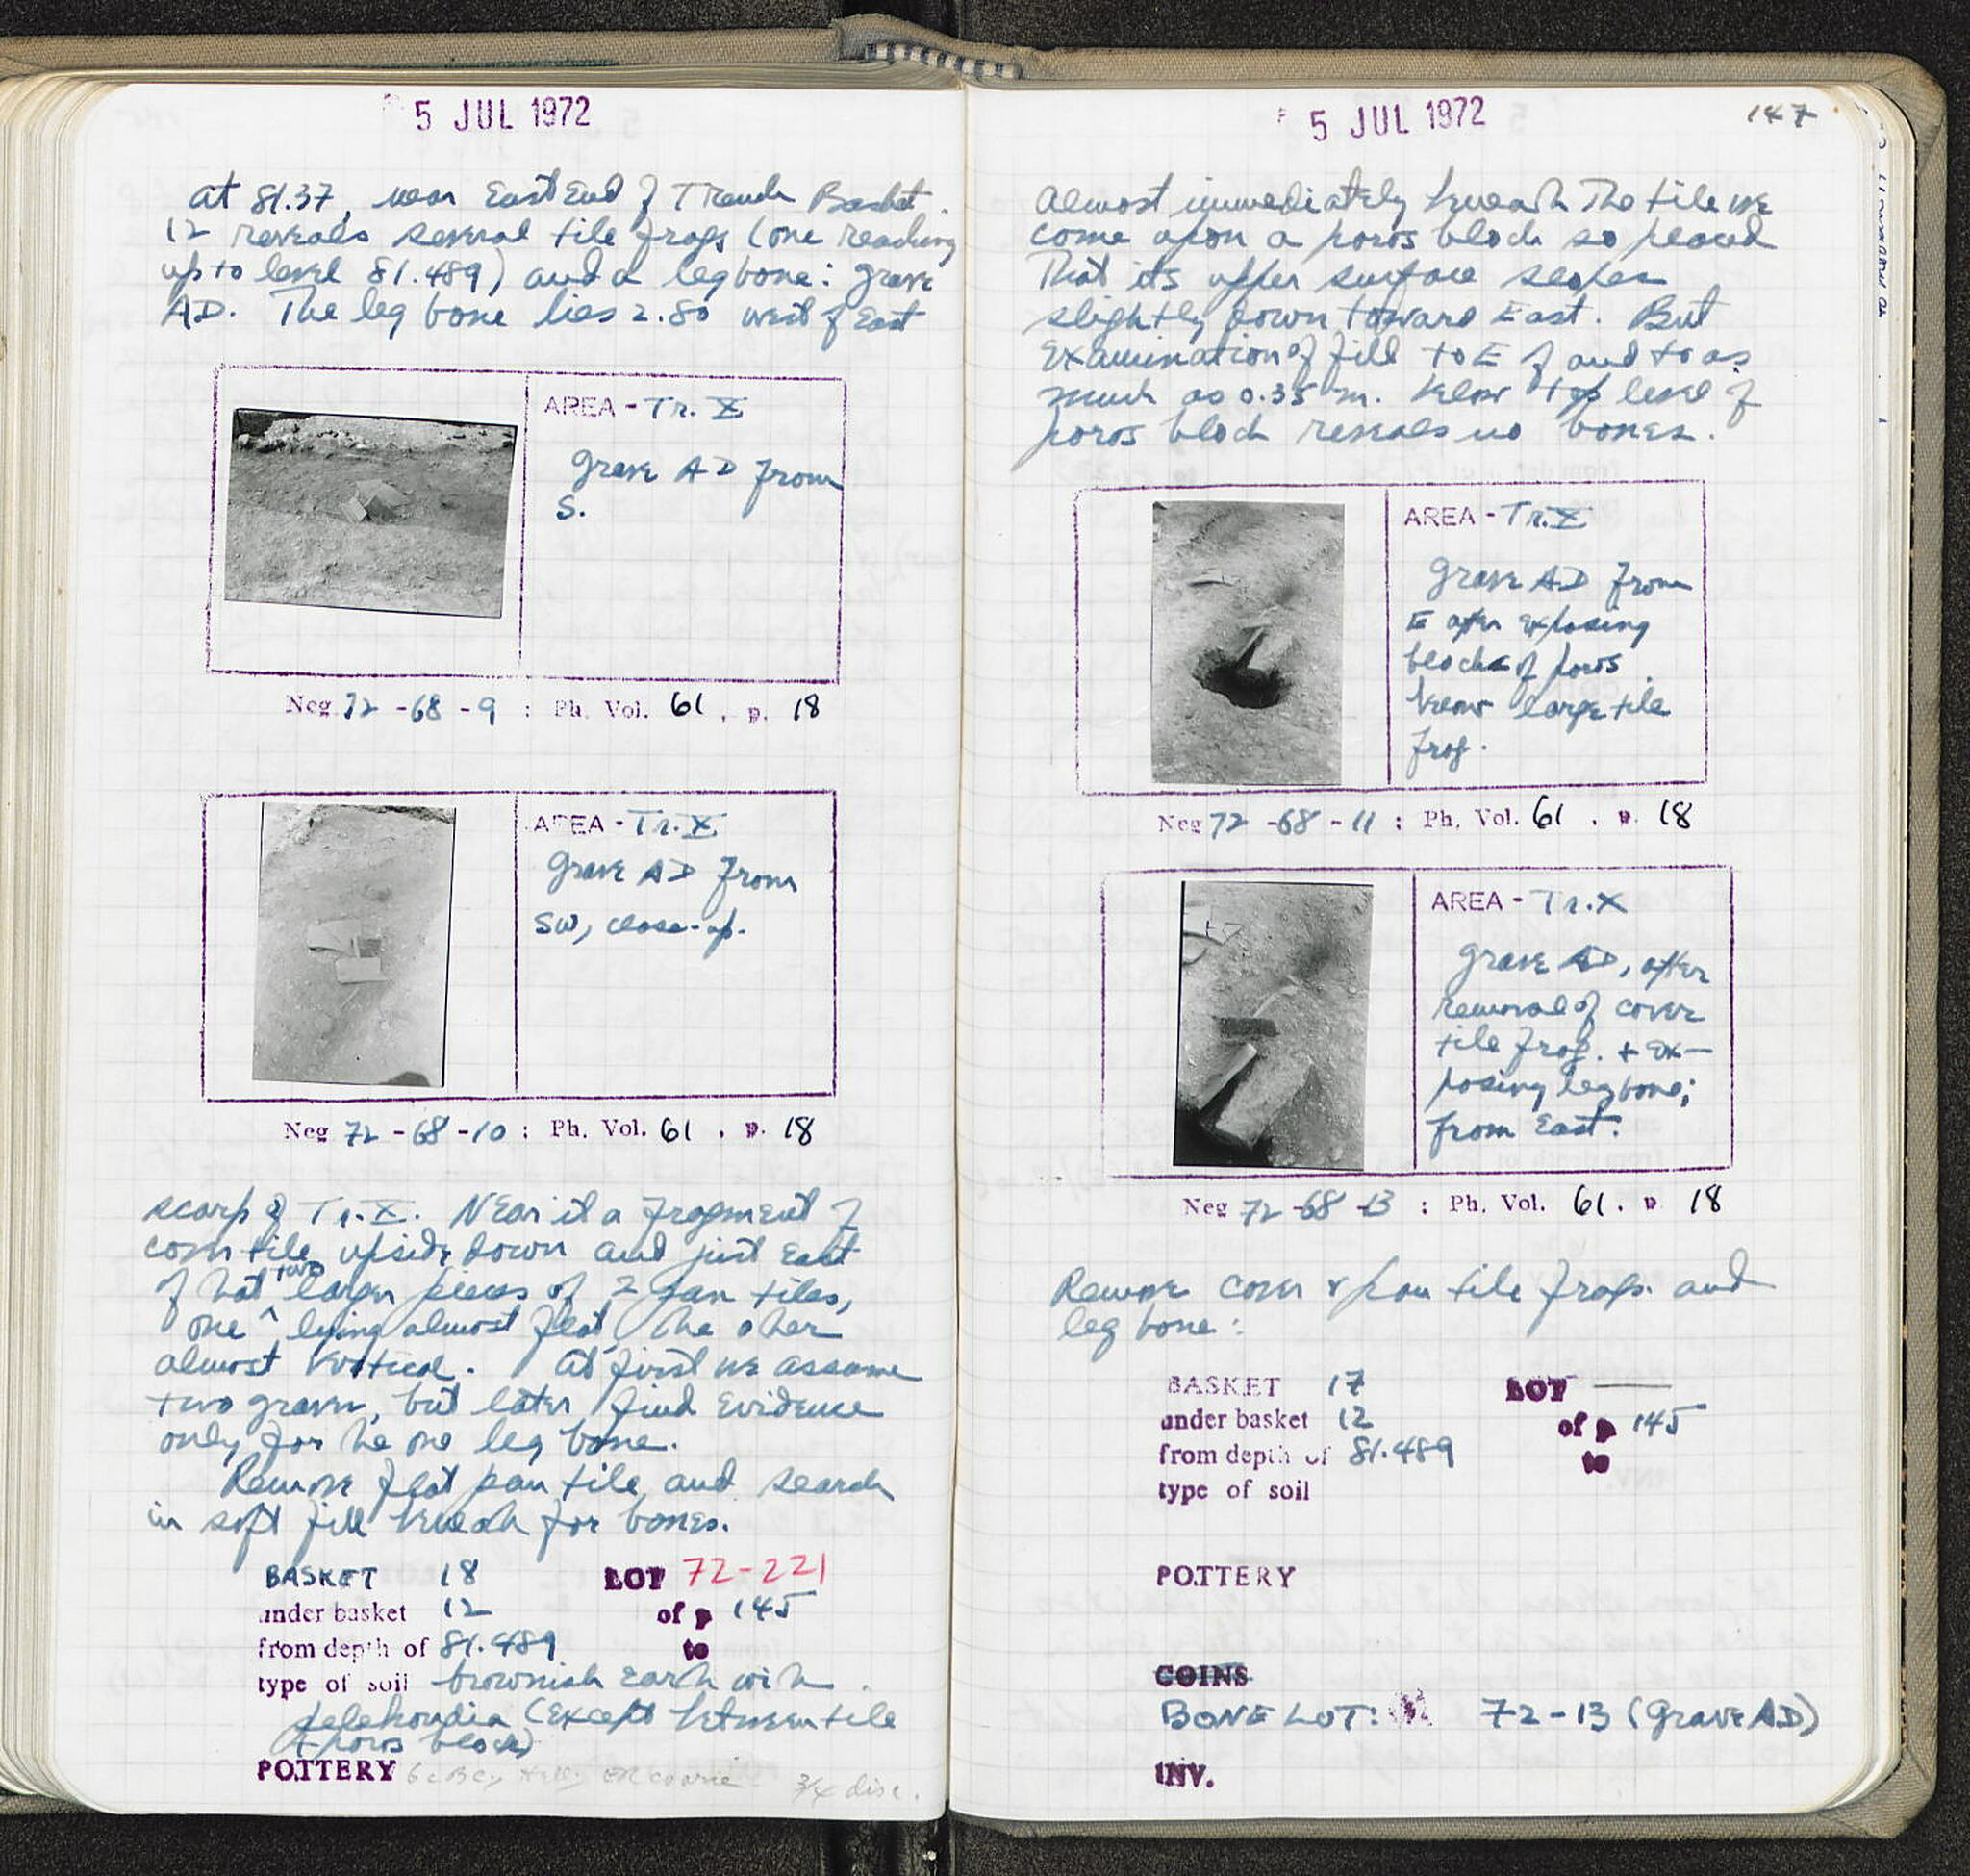 5 JUL 1972
at 81.37, near East End of Trench Basket
12 reveals several tile frags (one reaching
up to level 81.489) and a leg bone: grave
AD. The leg bone lies 2.80 west of East
AREA - Tr. X
Grave AD from
S.
Neg 72 - 68 - 9 : Ph. Vol. 61 , p. 18
AREA - Tr. X
Grave AD from
SW, close-up.
Neg 72 - 68 - 10 : Ph. Vol. 61 , p. 18
scarp of Tr. X. Near it a fragment of
cover tile upside down and just East
of that two larger pieces of 2 pan tiles,
one lying almost flat, the other
almost vertical. At first we assume
two graves, but later find evidence
only for the one leg bone.
Remove flat pan tile and search
in soft fill beneath for bones.
BASKET 18 LOT 72-221
under basket 12 of p 145
from depth of 81.489 to
type of soil brownish earth with
(except between tile
+ poros block)
POTTERY 6c BC, coarse 3/4 disc.
5 JUL 1972
147
Almost immediately beneath the tile we
come upon a poros block so placed
that its upper surface slopes
slightly down toward East. But
examination of fill to E of and to as
much as 0.35 m. below top level of
poros block reveals no bones.
AREA - Tr. X
Grave AD from
E after exposing
block of poros
below large tile
frag.
Neg 72 - 68 - 11 : Ph. Vol. 61 , p. 18
AREA - Tr. X
Grave AD, after
removal of cover
tile frag. + ex-
posing leg bone;
from East.
Neg 72 - 68 - 13 : Ph. Vol. 61 . p 18
Remove cover & pan tile frags. and
leg bone:
BASKET 17 LOT —
under basket 12 of p 145
from depth of 81.489 to
type of soil
POTTERY
COINS
BONE LOT: 72-13 (Grave AD)
INV.